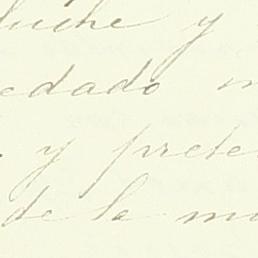 luche y
edado m
y prete
de la mo